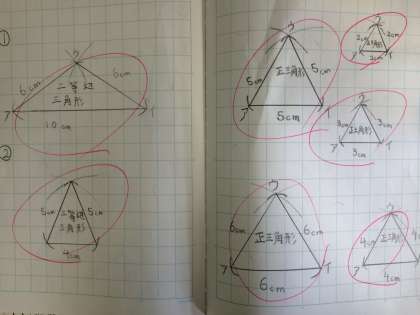 ①
ウ
6cm
6cm
二等辺
三角形
ア
イ
10cm
②
5cm
5cm
二等辺
三角形
4cm
ウ
5cm
正三角形
5cm
ア
イ
5cm
ウ
2cm
2cm
正三角形
ア
イ
2cm
ウ
3cm
3cm
正三角形
ア
イ
3cm
ウ
6cm
正三角形
6cm
ア
イ
6cm
ウ
4cm
正三角形
ア
4cm